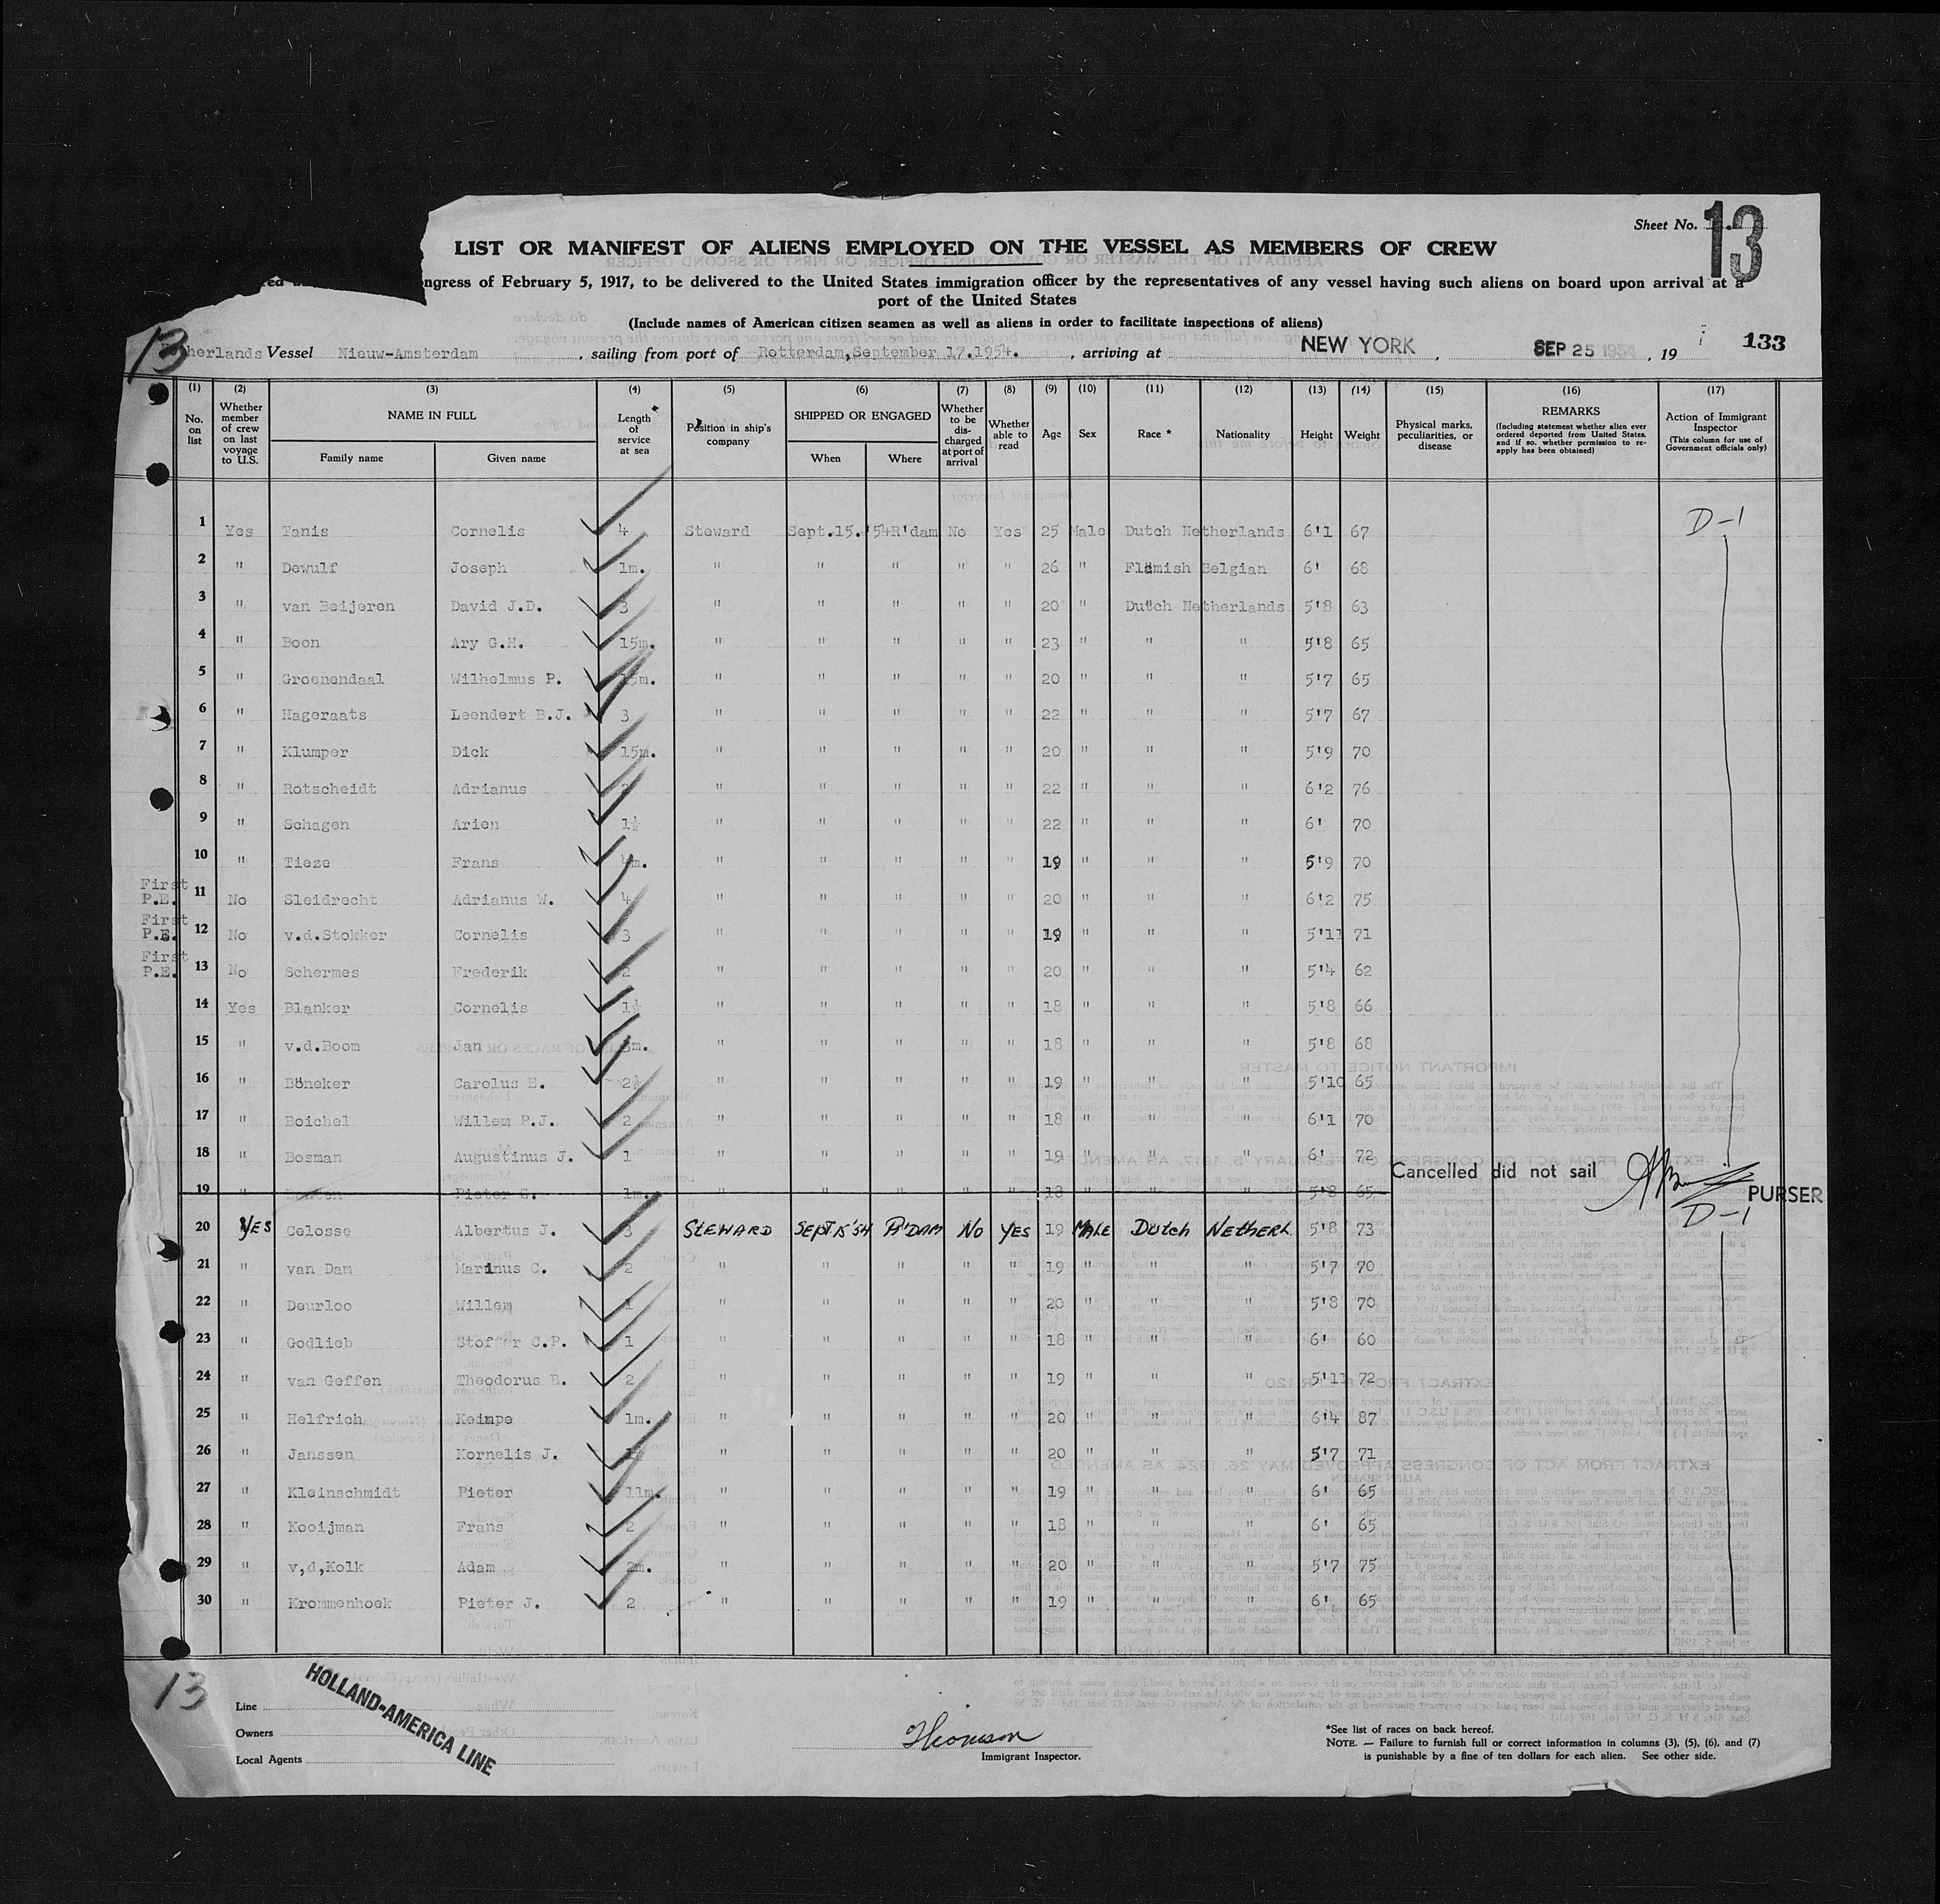 Sheet No. 13
LIST OR MANIFEST OF ALIENS EMPLOYED ON THE VESSEL AS MEMBERS OF CREW
ngress of February 5, 1917, to be delivered to the United States immigration officer by the representatives of any vessel having such aliens on board upon arrival at a
port of the United States
(Include names of American citizen seamen as well as aliens in order to facilitate inspections of aliens)
13 herlands Vessel Nieuw-Amsterdam , sailing from port of Rotterdam, September 17.1954. , arriving at NEW YORK , SEP 25 1954 , 19 133
(1) (2) (3) (4) (5) (6) (7) (8) (9) (10) (11) (12) (13) (14) (15) (16) (17)
No. on list Whether member of crew on last voyage to U.S. NAME IN FULL Family name Given name Length of service at sea Position in ship's company SHIPPED OR ENGAGED When Where Whether to be discharged at port of arrival Whether able to read Age Sex Race * Nationality Height Weight Physical marks, peculiarities, or disease REMARKS (Including statement whether alien ever ordered deported from United States, and if so, whether permission to re-apply has been obtained) Action of Immigrant Inspector (This column for use of Government officials only)
1 Yes Tanis Cornelis 4 Steward Sept.15.'54 R'dam No Yes 25 Male Dutch Netherlands 6'1 67 D-1
2 " Dewulf Joseph 1m. " " " " " 26 " Flemish Belgian 6' 68
3 " van Beijeren David J.D. 3 " " " " " 20 " Dutch Netherlands 5'8 63
4 " Boon Ary G.H. 15m. " " " " " 23 " " " 5'8 65
5 " Groenendaal Wilhelmus P. " " " " " 20 " " " 5'7 65
6 " Hageraats Leendert B.J. 3 " " " " " 22 " " " 5'7 67
7 " Klumper Dick 15m. " " " " " 20 " " " 5'9 70
8 " Rotscheidt Adrianus " " " " " 22 " " " 6'2 76
9 " Schagen Arien 1½ " " " " " 22 " " " 6' 70
10 " Tieze Frans " " " " " 19 " " " 5'9 70
First P.E. 11 No Sleidrecht Adrianus W. 4 " " " " " 20 " " " 6'2 75
First P.E. 12 No v.d.Stokker Cornelis 3 " " " " " 19 " " " 5'11 71
First P.E. 13 No Schermes Frederik 2 " " " " " 20 " " " 5'4 62
14 Yes Blanker Cornelis 1½ " " " " " 18 " " " 5'8 66
15 " v.d.Boom Jan " " " " " 18 " " " 5'8 68
16 " Böneker Carolus E. 2½ " " " " " 19 " " " 5'10 65
17 " Boichel Willem P.J. 2 " " " " " 18 " " " 6'1 70
18 " Bosman Augustinus J. 1 " " " " " 19 " " " 6' 72
19 " Pieter G. 1m. " " " " " 18 " " " 5'8 65 Cancelled did not sail PURSER
20 YES Celosse Albertus J. 3 STEWARD SEPT 15 '54 R'DAM NO YES 19 MALE Dutch NETHERL 5'8 73 D-1
21 " van Dam Marinus C. 2 " " " " " 19 " " " 5'7 70
22 " Deurloo Willem 1 " " " " " 20 " " " 5'8 70
23 " Godlieb Stoffer C.P. 1 " " " " " 18 " " " 6' 60
24 " van Geffen Theodorus B. 2 " " " " " 19 " " " 5'11 72
25 " Helfrich Keimpe 1m. " " " " " 20 " " " 6'4 87
26 " Janssen Kornelis J. " " " " " 20 " " " 5'7 71
27 " Kleinschmidt Pieter 11m. " " " " " 19 " " " 6' 65
28 " Kooijman Frans 2 " " " " " 18 " " " 6' 65
29 " v,d,Kolk Adam 2m. " " " " " 20 " " " 5'7 75
30 " Krommenhoek Pieter J. 2 " " " " " 19 " " " 6' 65
13
Line
Owners
Local Agents
HOLLAND-AMERICA LINE
Thomson
Immigrant Inspector.
*See list of races on back hereof.
NOTE. — Failure to furnish full or correct information in columns (3), (5), (6), and (7)
is punishable by a fine of ten dollars for each alien. See other side.